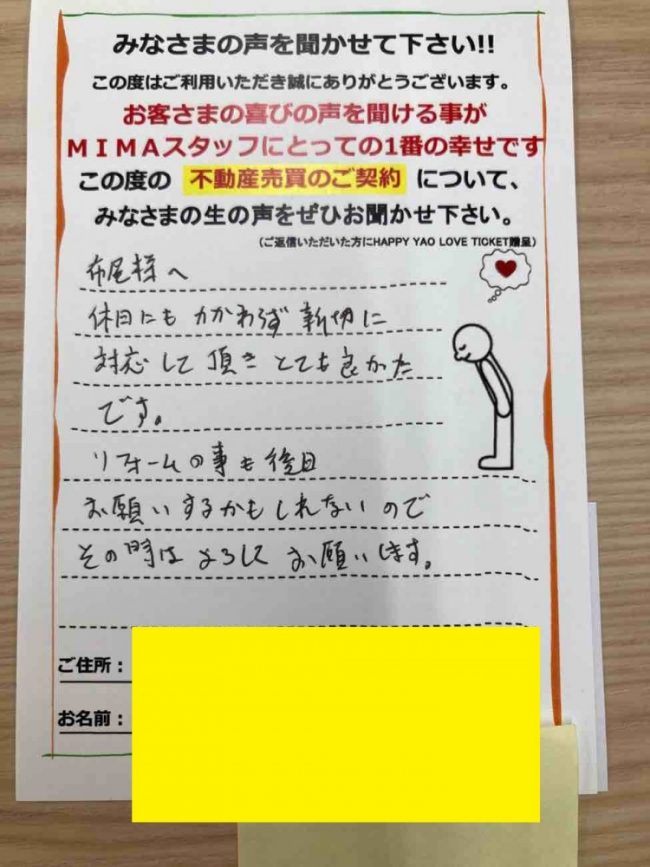 みなさまの声を聞かせて下さい!!
この度はご利用いただき誠にありがとうございます。
お客さまの喜びの声を聞ける事が
ＭＩＭＡスタッフにとっての1番の幸せです
この度の 不動産売買のご契約 について、
みなさまの生の声をぜひお聞かせ下さい。
（ご返信いただいた方にHAPPY YAO LOVE TICKET贈呈）
布尾様へ
休日にもかかわらず 親切に
対応して頂き とても良かた
です。
リフォームの事も後日
お願いするかもしれないので
その時はよろしく お願いします。
ご住所：
お名前：